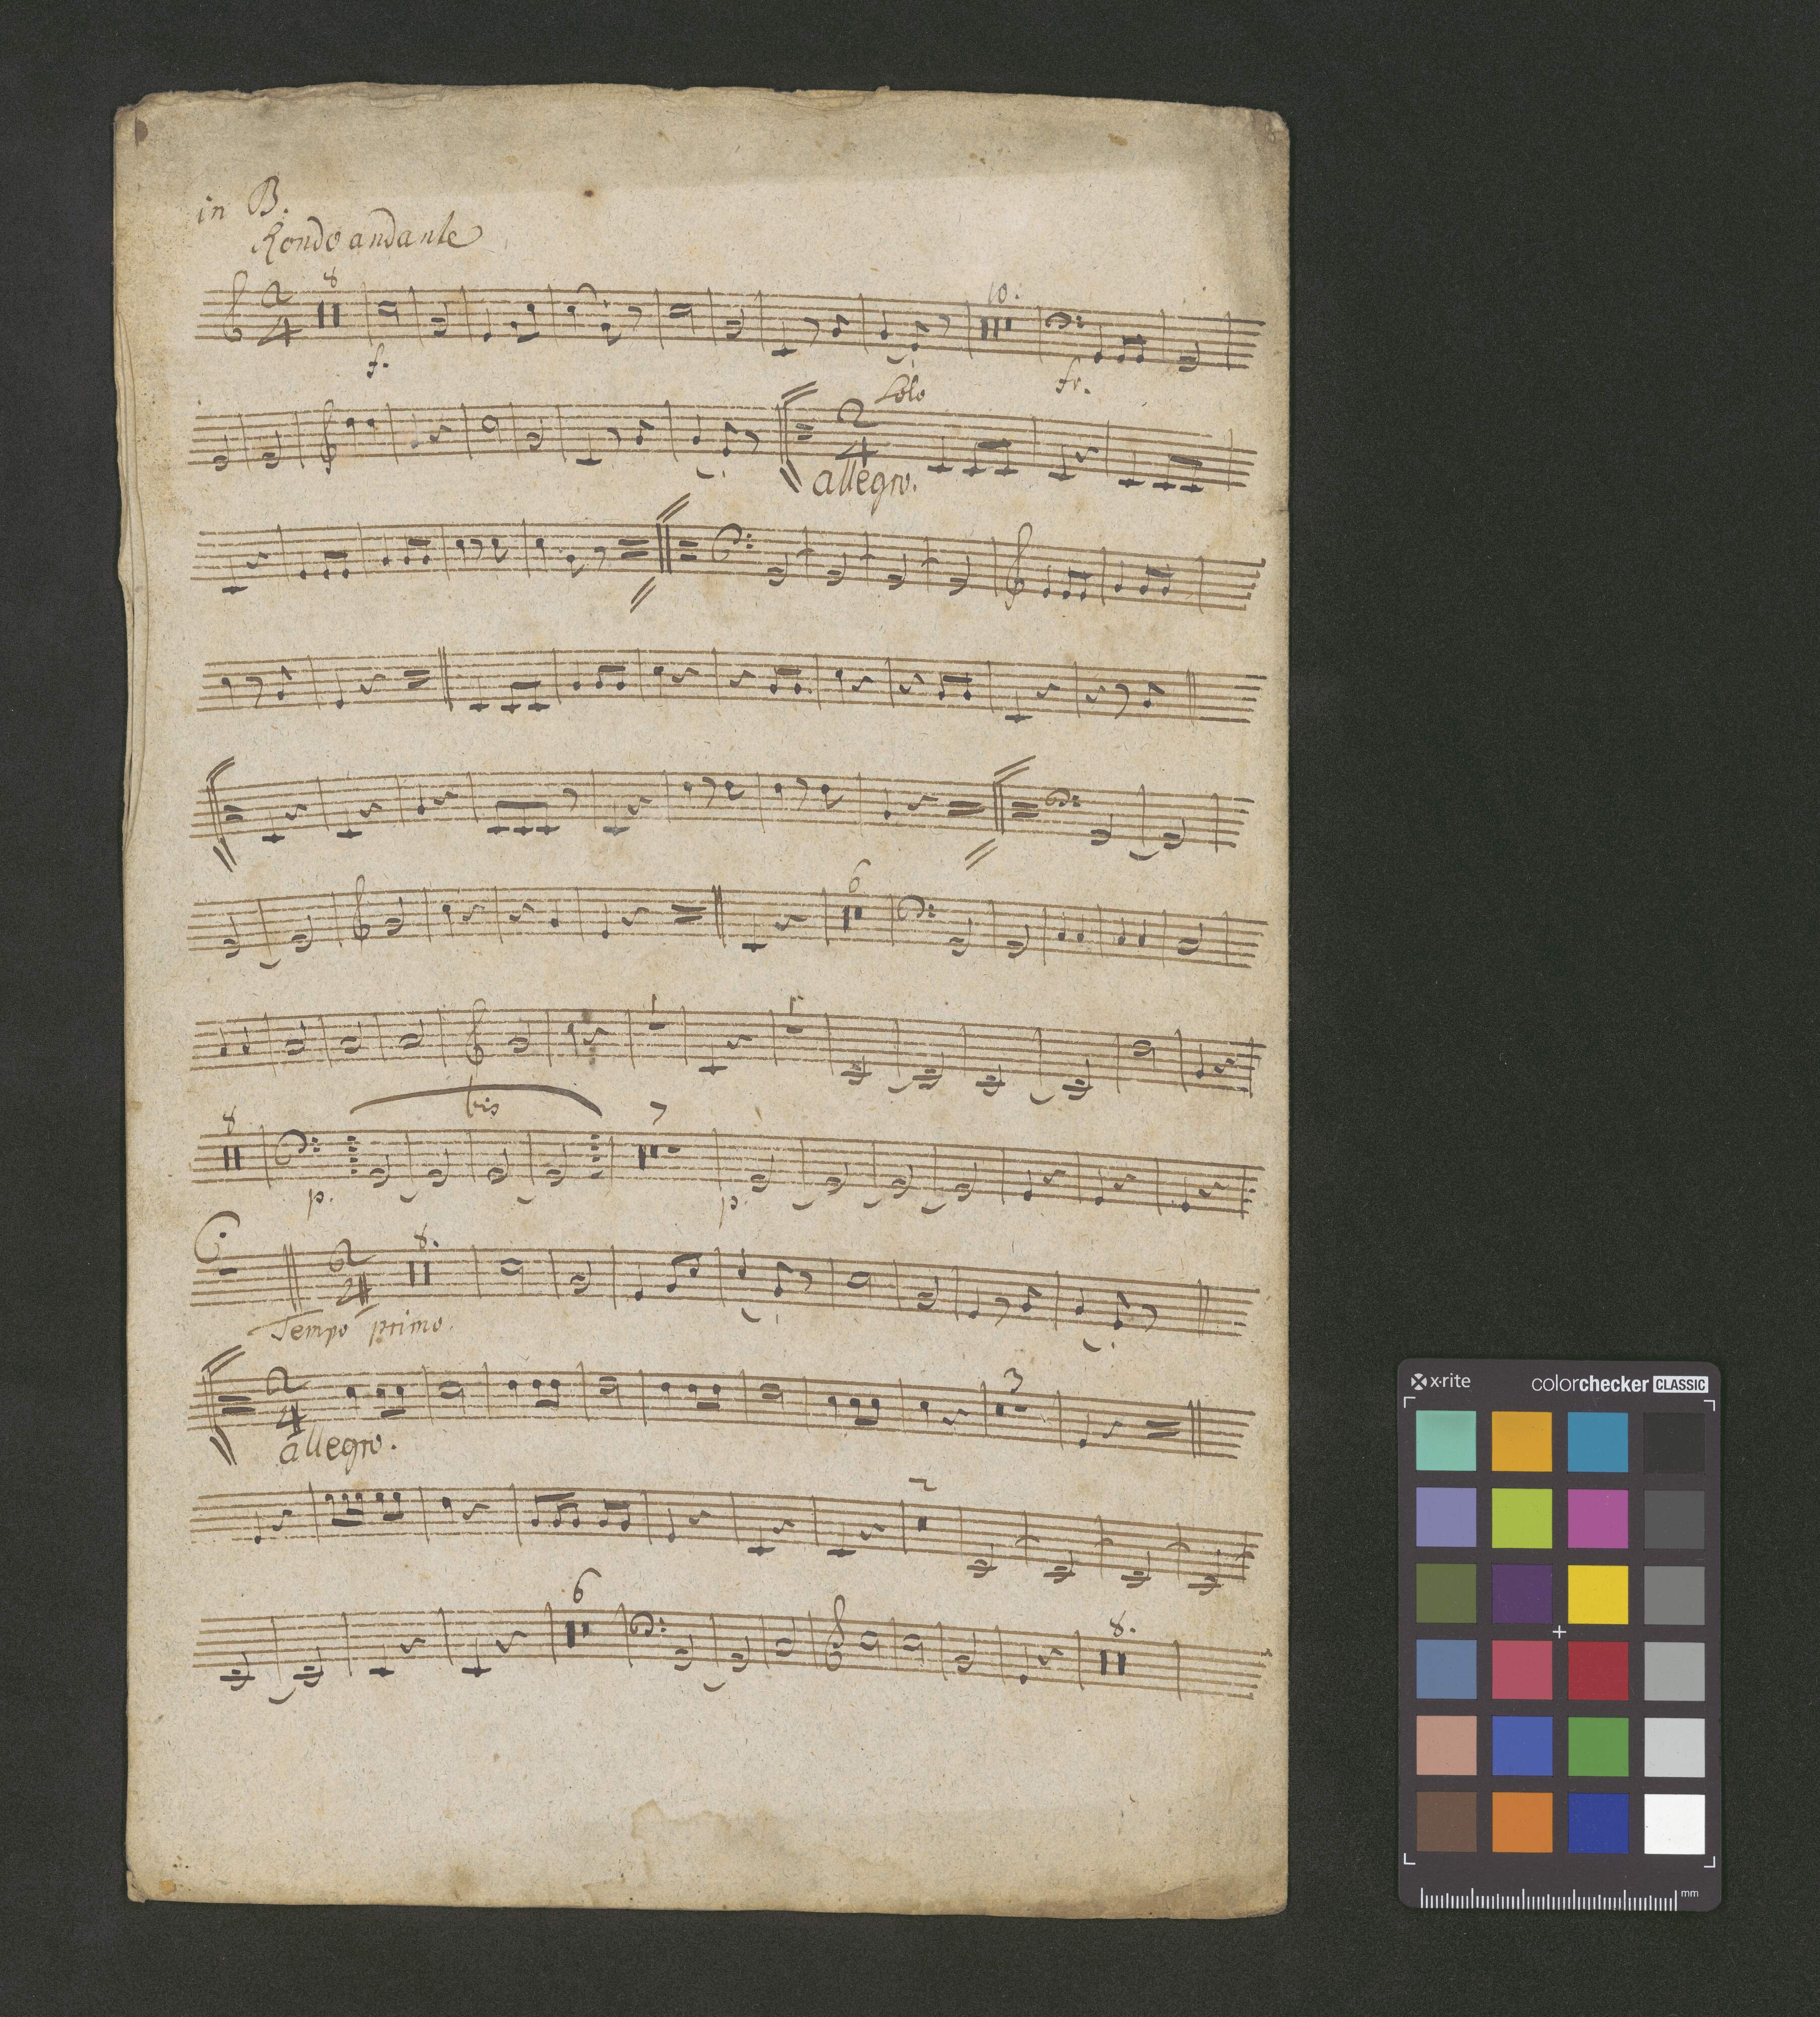 in B.
Rondo andante
8
2
4
10.
f.
fr.
Solo
2
4
allegro.
6
8
bis
7
p.
p.
8.
2
4
Tempo primo.
2
4
3
allegro.
2
6
8.
x·rite
colorchecker CLASSIC
mm